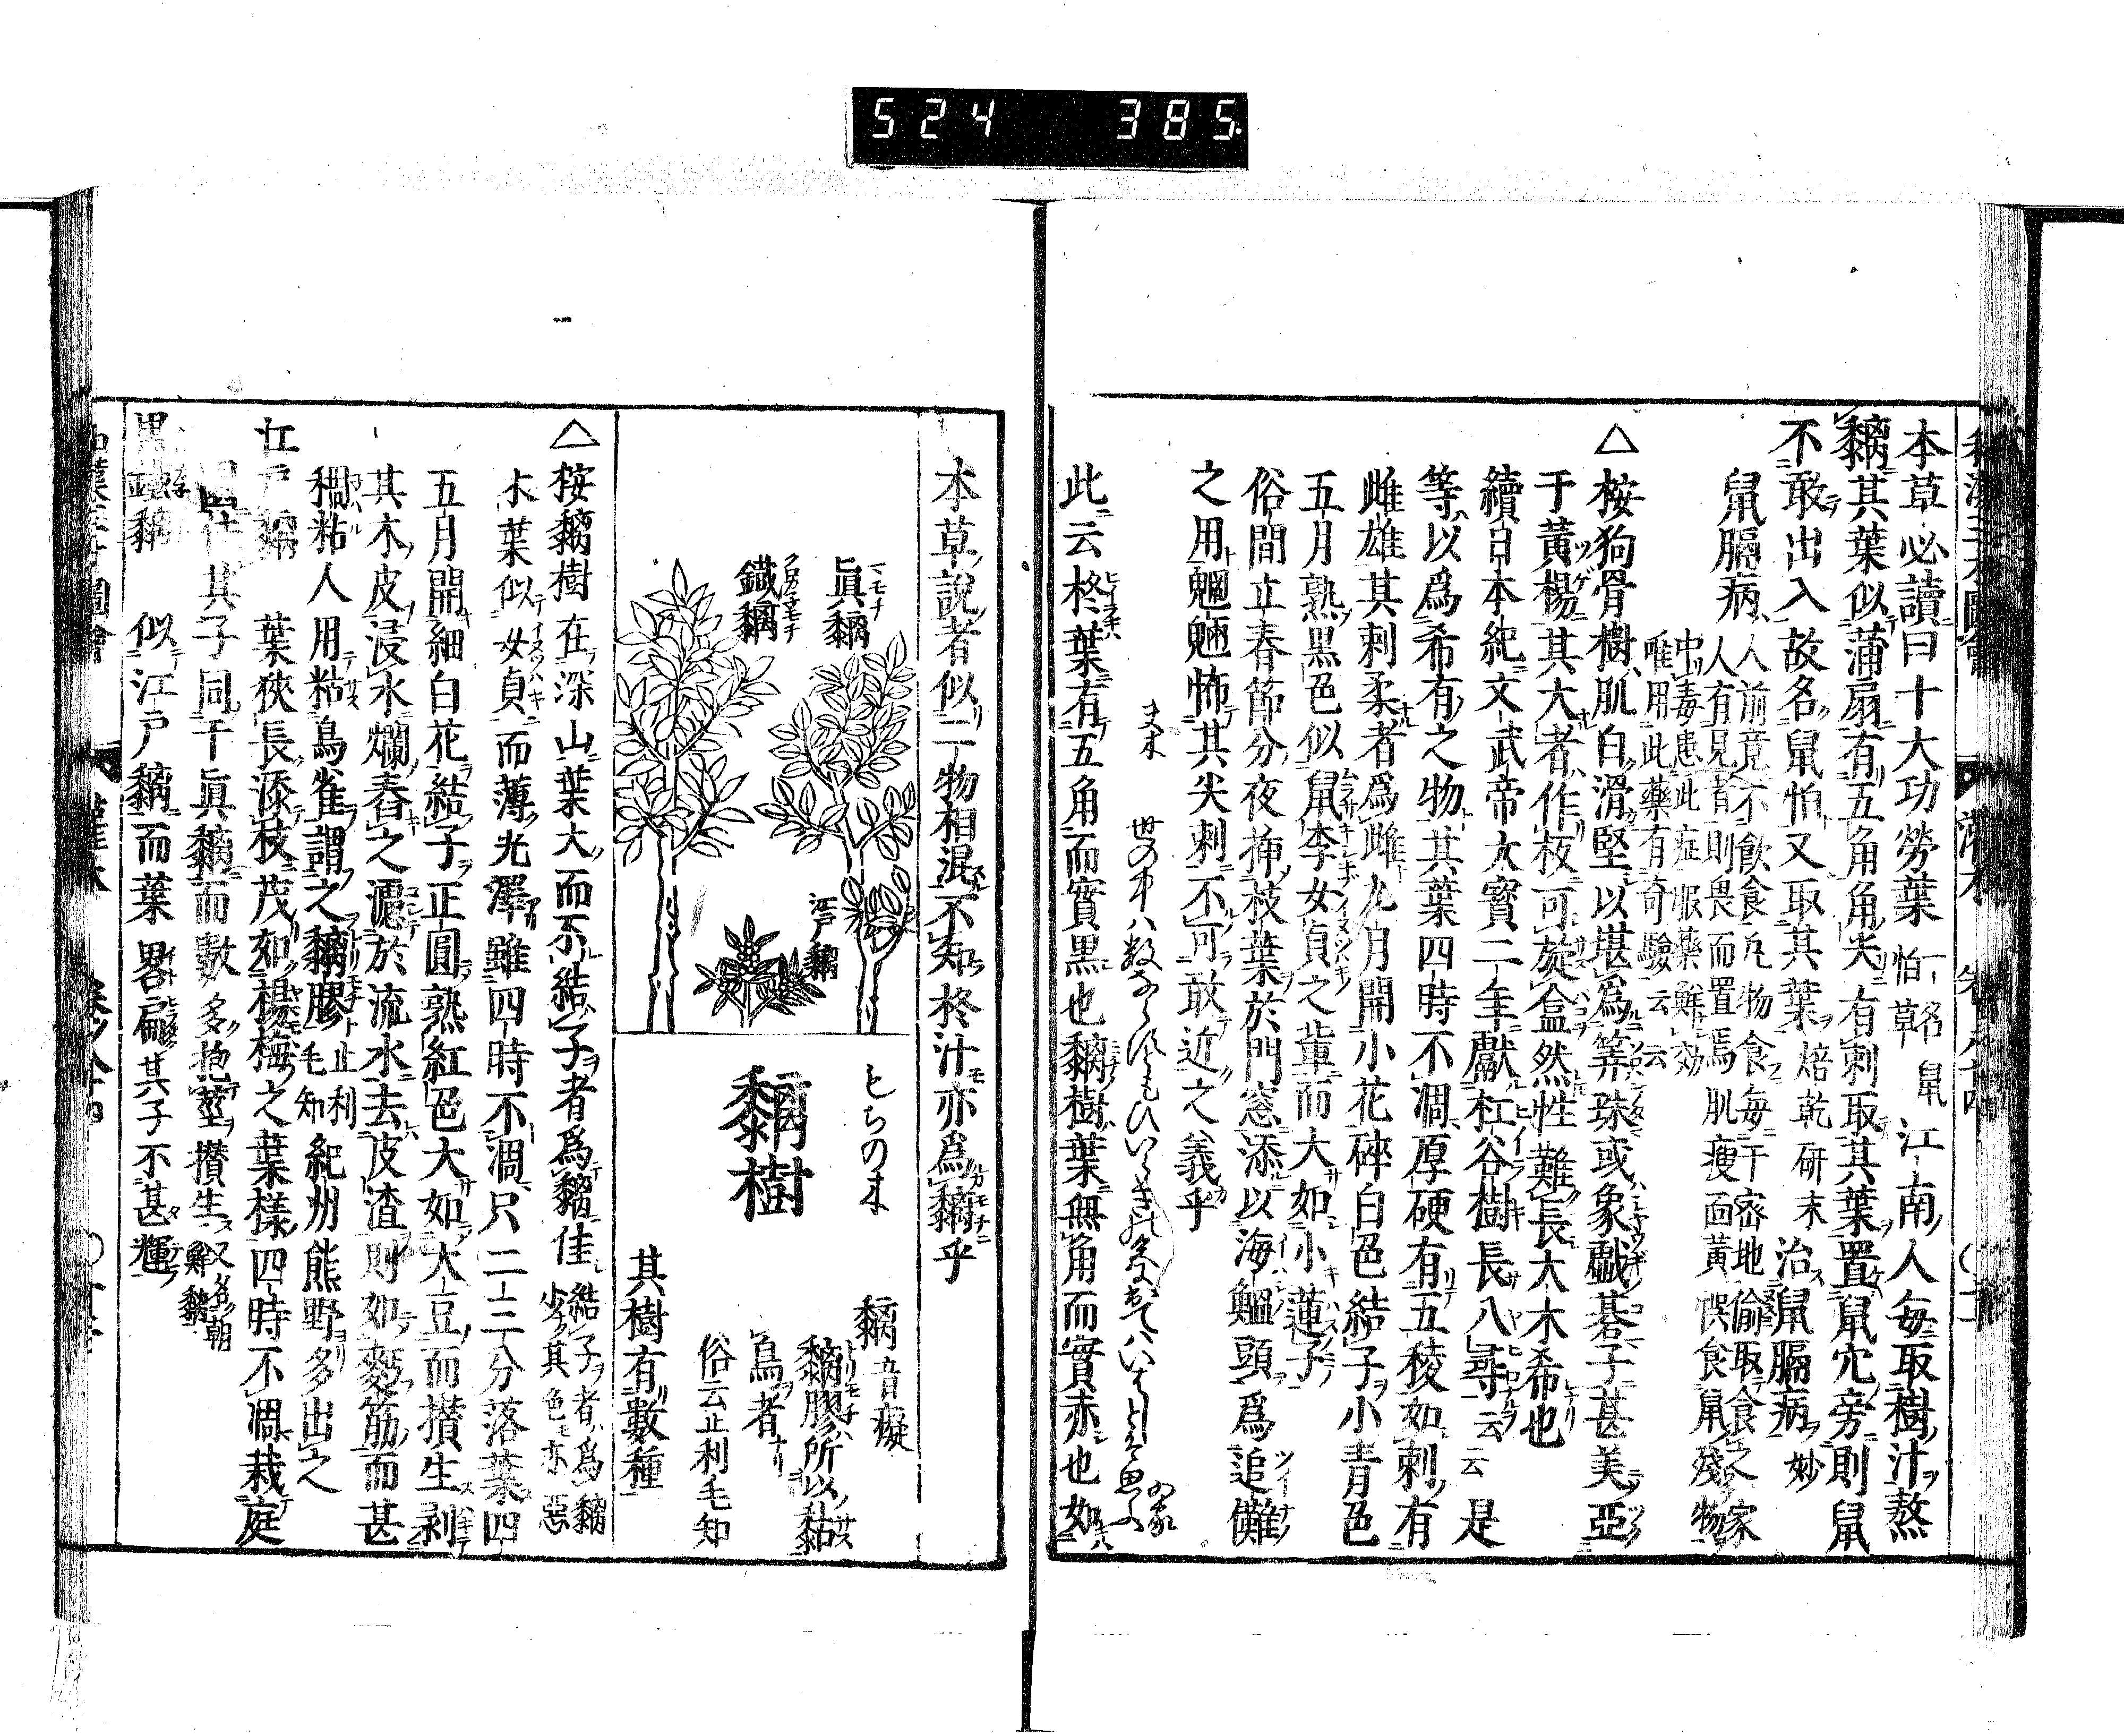 524 385
本草必讀曰十大功勞葉 一名鼠怕草 江南人每取樹汁熬
黐其葉似蒲扇有五角角尖有刺取其葉置鼠穴旁則鼠
不敢出入故名鼠怕又取其葉焙乾研末治鼠膈病妙
鼠膈病
人前竟不飲食凡物食每于密地偷取食之家
人有見者則畏而置焉肌瘦面黃悞食鼠殘物
中毒患此症服藥鮮効
唯用此藥有奇驗云云
△按狗骨樹肌白滑堅以堪爲筭珠或象戯碁子甚美亞
于黃楊其大者作板可旋盒然性難長大木希也
續日本紀文武帝大寳二年獻杠谷樹長八尋云云是
等以爲希有之物其葉四時不凋厚硬有五稜如刺有
雌雄其刺柔者爲雌九月開小花碎白色結子小青色
五月熟黒色似鼠李女貞之軰而大如小蓮子
俗間立春節分夜揷枝葉於門窓添以海鰮頭爲追儺
之用魍魎怖其尖刺不可敢近之義乎
夫木
世の中は数ならずともひいらぎの色に出てはいはじとぞ思ふ
爲家
此云柊葉有五角而實黒也黐樹葉無角而實赤也如
本草說者似二物相混不知柊汁亦爲黐乎
眞黐
鐵黐
江戸黐
もちの木
黐樹
黐音癡
黐膠所以黏
鳥者
俗云止利毛知
其樹有數種
△按黐樹在深山葉大而不結子者爲黐佳 結子者爲黐少其色亦惡
木葉似女貞而薄光澤雖四時不凋只二三分落葉四
五月開細白花結子正圓熟紅色大如大豆而攅生剥
其木皮浸水爛舂之漉於流水去皮渣則如麪筋而甚
稠粘人用粘鳥雀謂之黐膠 止利毛知 紀州熊野多出之
江戸黐 葉狹長添枝茂如楊梅之葉樣四時不凋栽庭
其子同于眞黐而數多抱莖攅生 又名朝鮮黐
黒鐵黐 似江戸黐而葉畧扁其子不甚輝